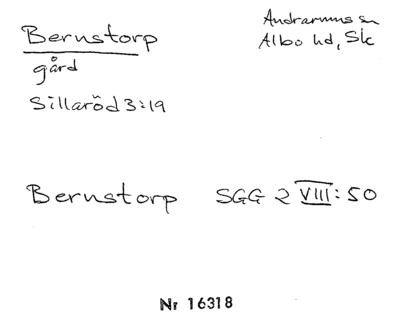 Bernstorp
Andrarums sn
Albo hd, Sk
gård
Sillaröd 3:19
Bernstorp SGG 2 VIII: 50
Nr 16318